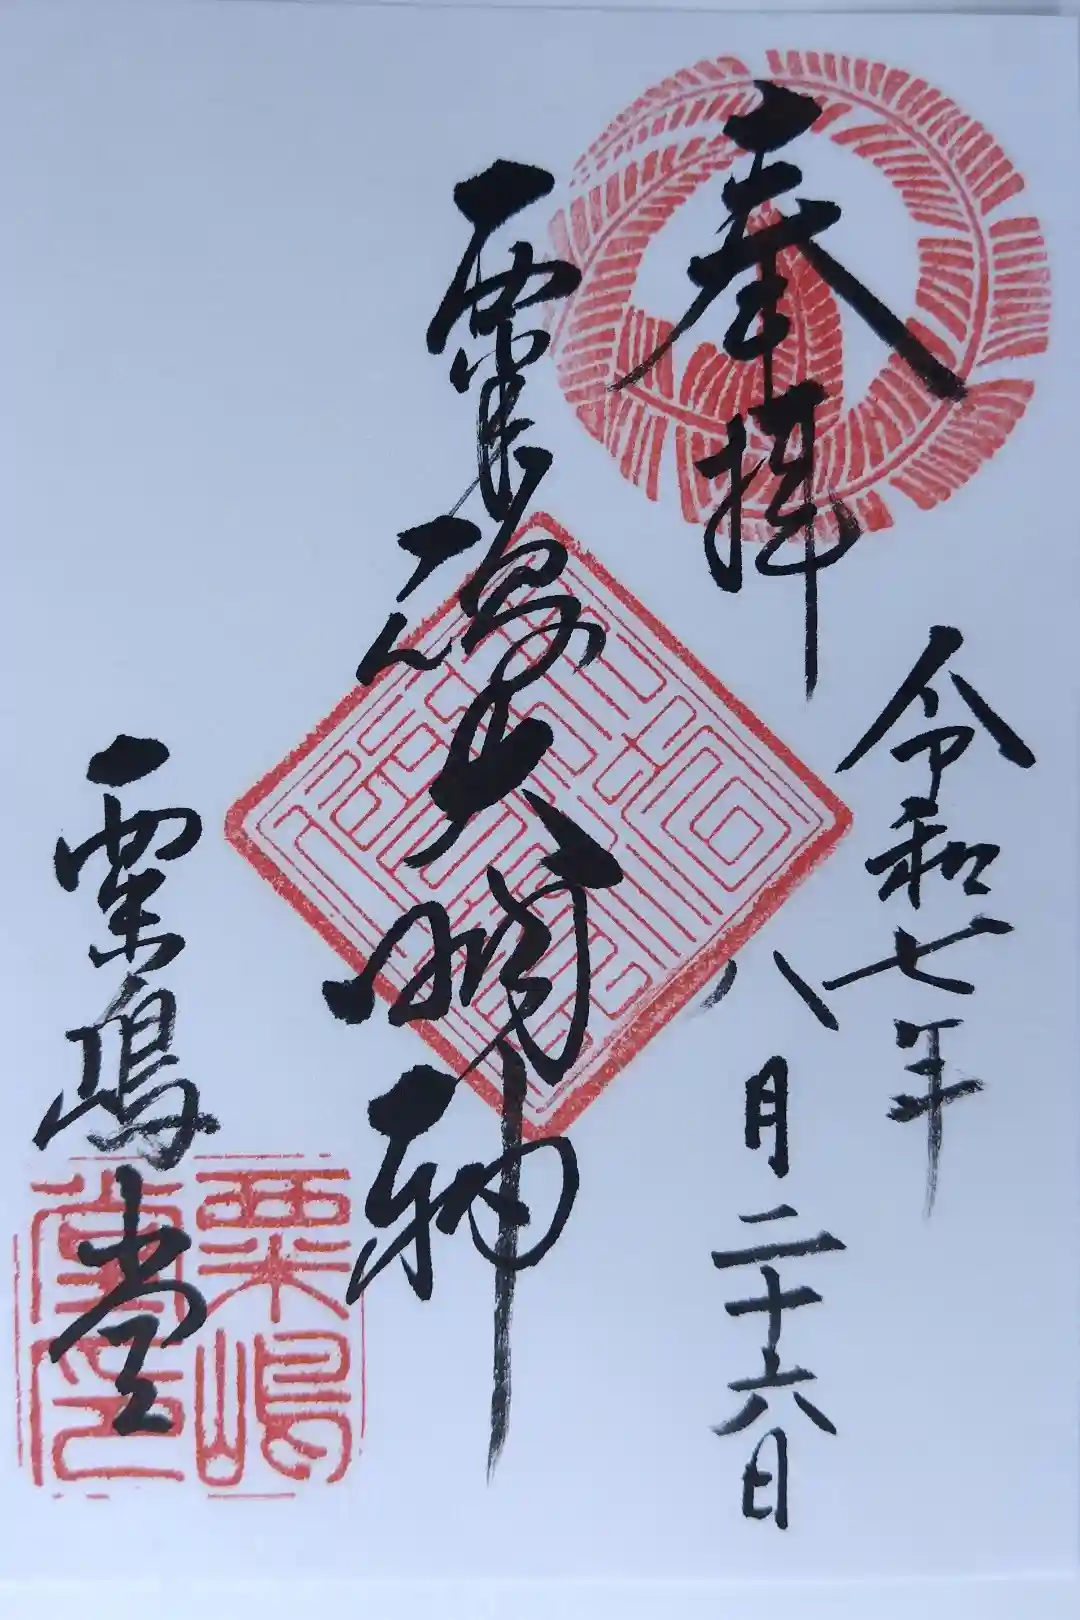 奉拝
令和七年
八月二十六日
大明神
粟嶋堂
粟嶋
堂印